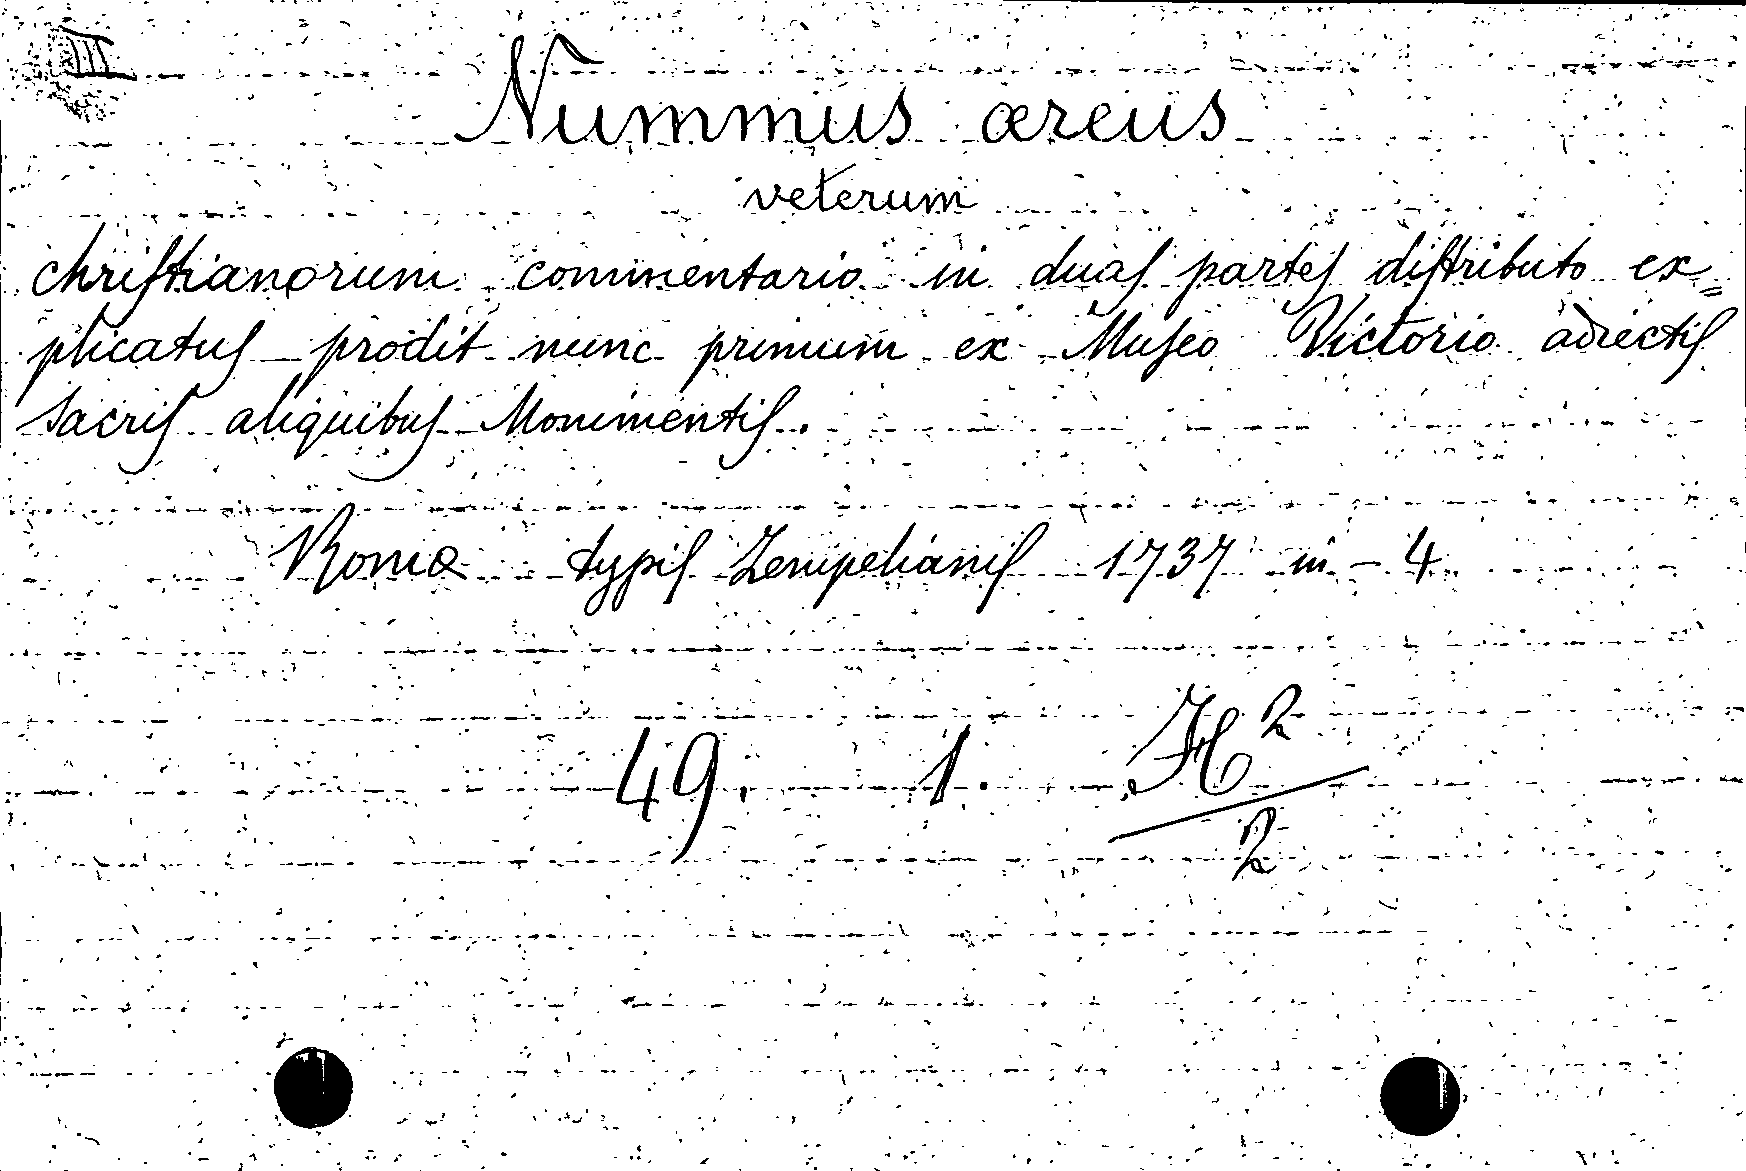 III
Nummus æreus
veterum
chriſtianorum commentario in duaſ parteſ diſtributo ex=
plicatuſ prodit nunc primum ex Muſeo Victorio adiectiſ
Sacriſ aliquibuſ Monimentiſ.
Romæ typiſ Zempelianiſ 1737 in - 4
49. 1. H²
2